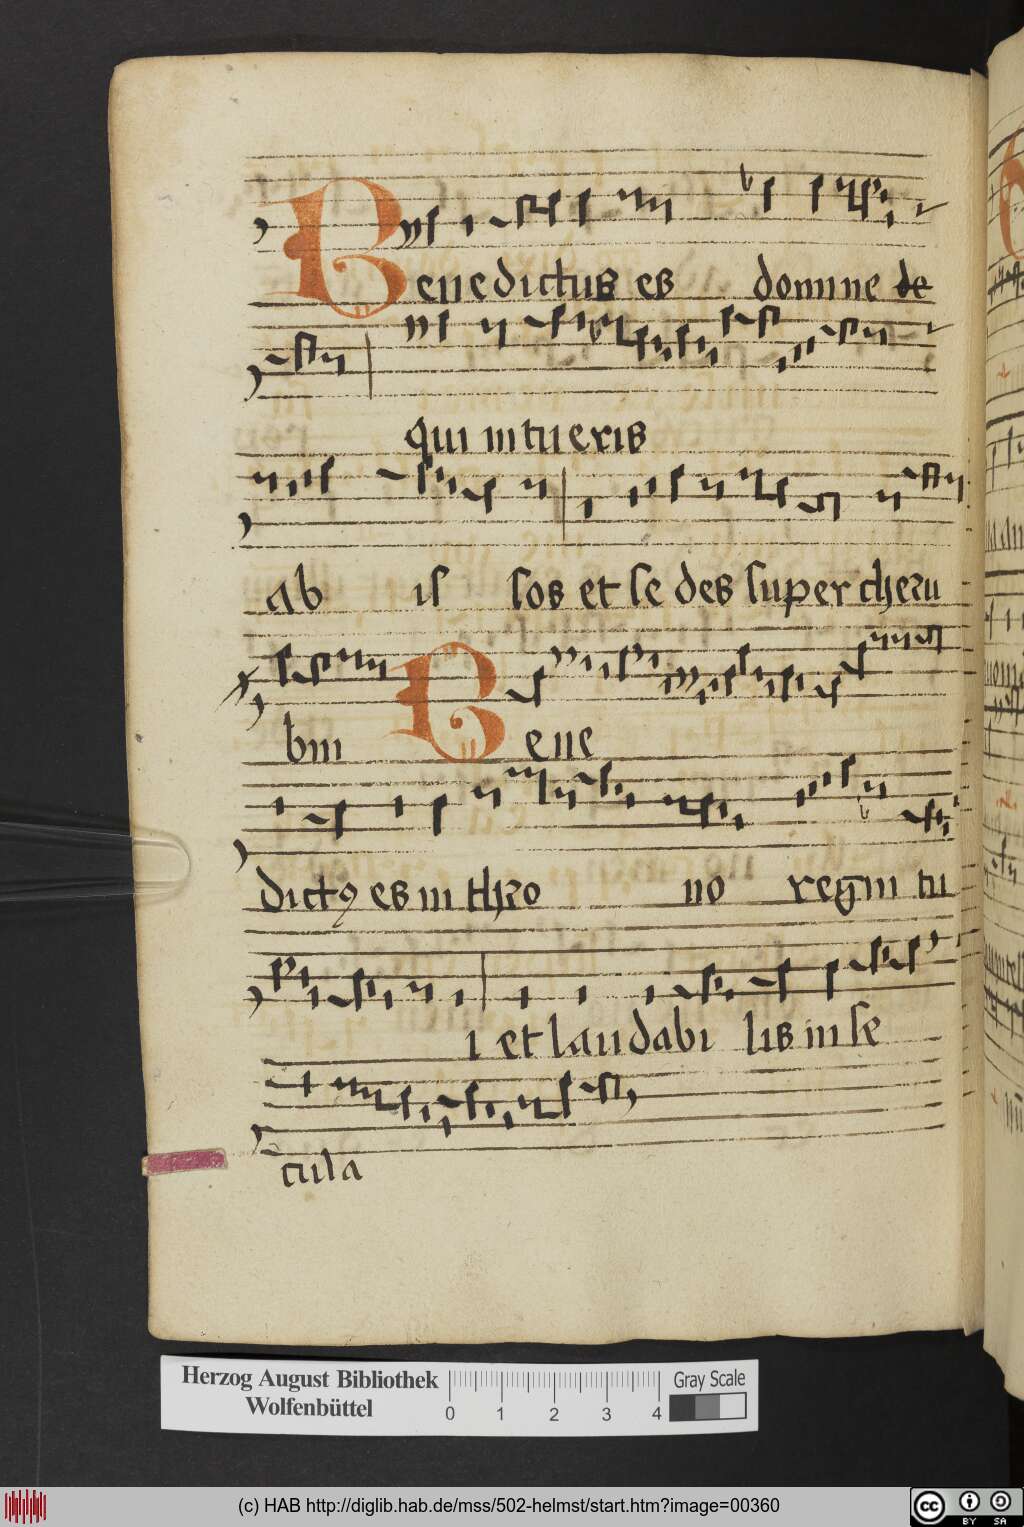 Benedictus es domine de
qui intueris
ab is sos et se des super cheru
bin Bene
dictꝰ es in thro no regni tu
i et laudabi lis in se
cula
Herzog August Bibliothek
Wolfenbüttel
0 1 2 3 4
Gray Scale
(c) HAB http://diglib.hab.de/mss/502-helmst/start.htm?image=00360
cc BY SA